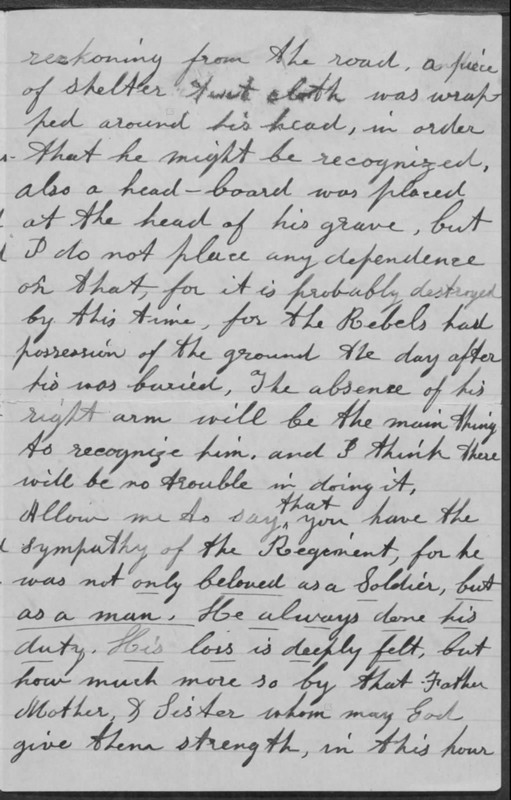 reckoning from the road, a piece
of shelter tent cloth was wrap-
ped around his head, in order
that he might be recognized,
also a head-board was placed
at the head of his grave, but
I do not place any dependence
on that, for it is probably destroyed
by this time, for the Rebels had
possession of the ground the day after
his was buried, The absence of his
right arm will be the main thing
to recognize him, and I think there
will be no trouble in doing it,
Allow me to say, that you have the
sympathy of the Regiment, for he
was not only beloved as a Soldier, but
as a man. He always done his
duty. His loss is deeply felt, but
how much more so by that Father
Mother, & Sister whom may God
give them strength, in this hour